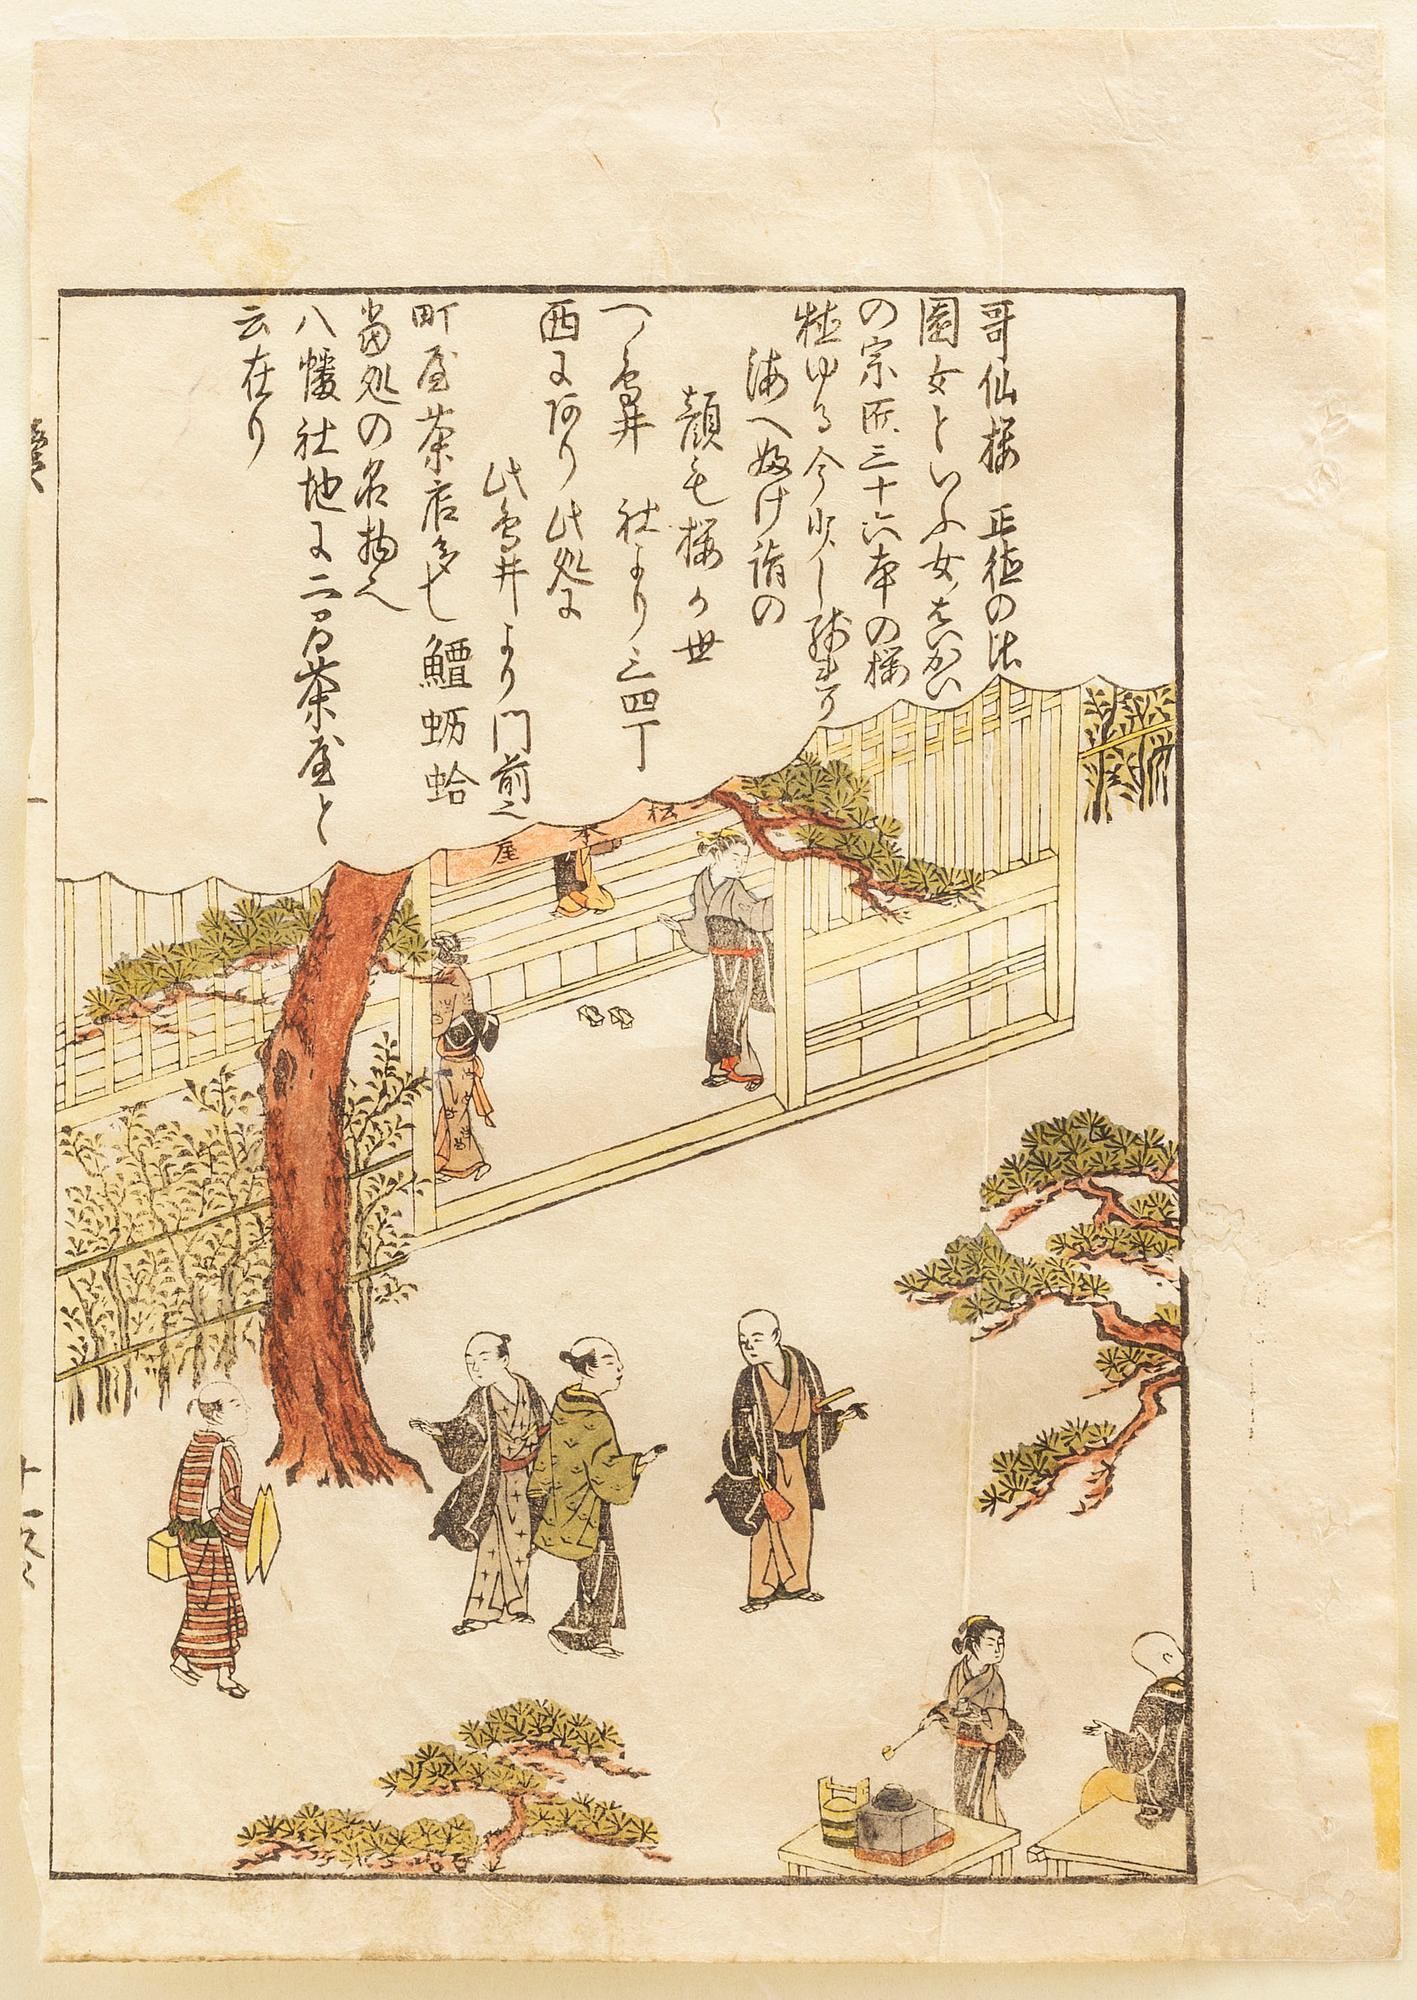 哥仙桜 正徳の比
園女といふ女はいかい
の宗匠三十六本の桜
植ゆる今少し残れり
海へぬけ道の
顔見桜の世
一ノ鳥井 社より三四丁
西にあり此処に
此鳥井より門前之
町屋茶店多し 鱣 蛎 蛤
当処の名物也
八幡社地に二間茶屋と
云在り
松本屋